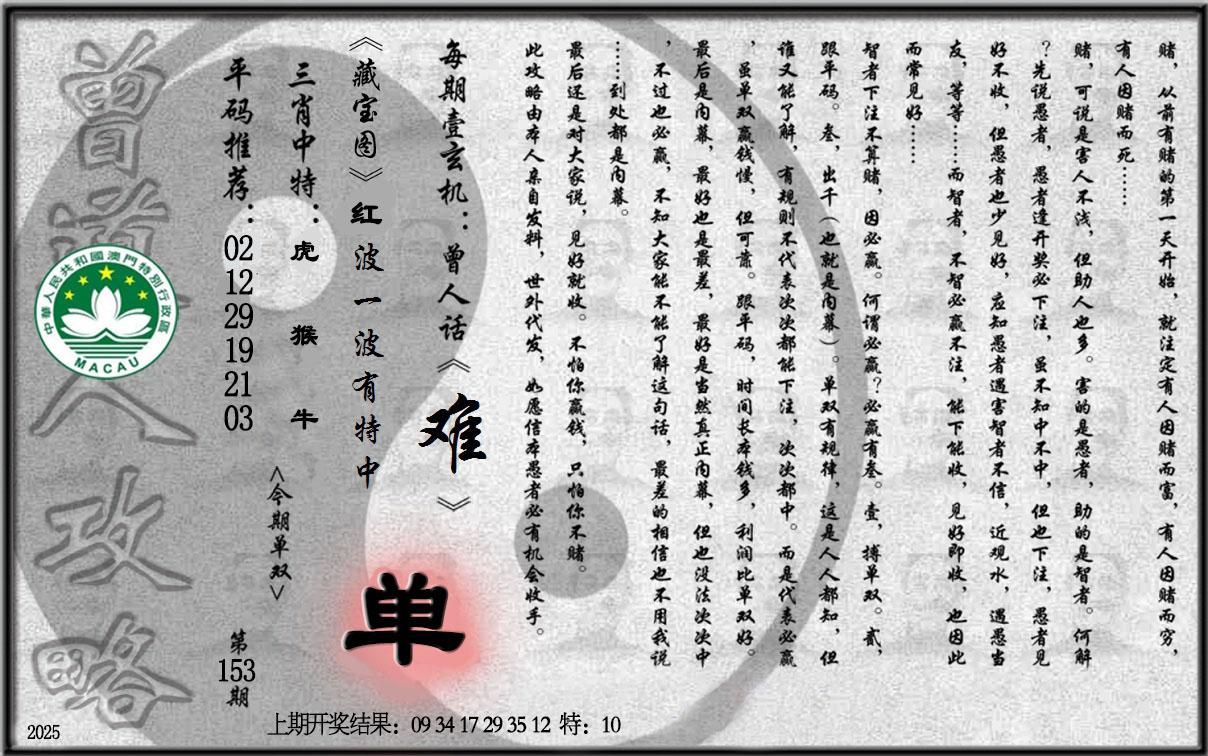 赌，从前有赌的第一天开始，就注定有人因赌而富，有人因赌而穷，
有人因赌而死……
赌，可说是害人不浅，但助人也多。害的是愚者，助的是智者。何解
？先说愚者，愚者逢开奖必下注，虽不知中不中，但也下注，愚者见
好不收，但愚者也少见好，应知愚者遇害智者不信，近观水，遇愚当
友，等等……而智者，不智必赢不注，能下能收，见好即收，也因此
而常见好……
智者下注不算赌，因必赢。何谓必赢？必赢有叁。壹，搏单双。贰，
跟平码。叁，出千（也就是内幕）。单双有规律，这是人人都知，但
谁又能了解，有规则不代表次次都能下注，次次都中。而是代表必赢
，虽单双赢钱慢，但可靠。跟平码，时间长本钱多，利润比单双好。
最后是内幕，最好也是最差，最好是当然真正内幕，但也没法次次中
，不过也必赢，不知大家能不能了解这句话，最差的相信也不用我说
……到处都是内幕。
最后还是对大家说，见好就收。不怕你赢钱，只怕你不赌。
此攻略由本人亲自发料，世外代发，如愿信本愚者必有机会收手。
每期壹玄机：曾人话《难》
《藏宝图》红波一波有特中
三肖中特：虎 猴 牛
<今期单双>
单
平码推荐：02 12 29 19 21 03
第153期
曾道人攻略
中華人民共和國澳門特別行政區
MACAU
2025
上期开奖结果：09 34 17 29 35 12 特：10